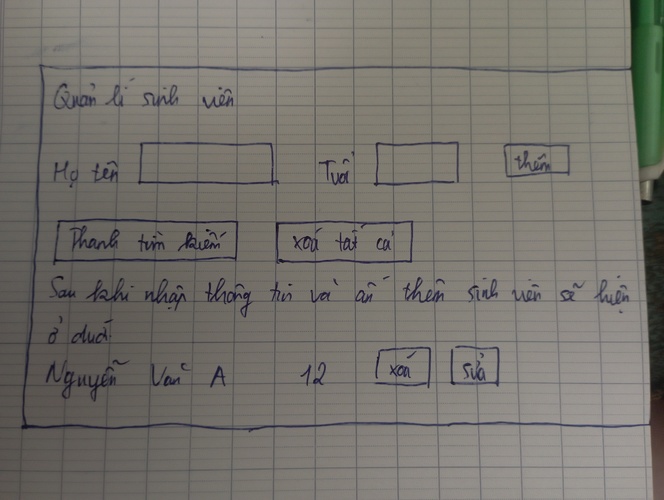 Quản lí sinh viên
Họ tên Tuổi thêm
Thanh tìm kiếm xoá tất cả
Sau khi nhập thông tin và ấn thêm sinh viên sẽ hiện
ở dưới
Nguyễn Văn A 12 xoá sửa